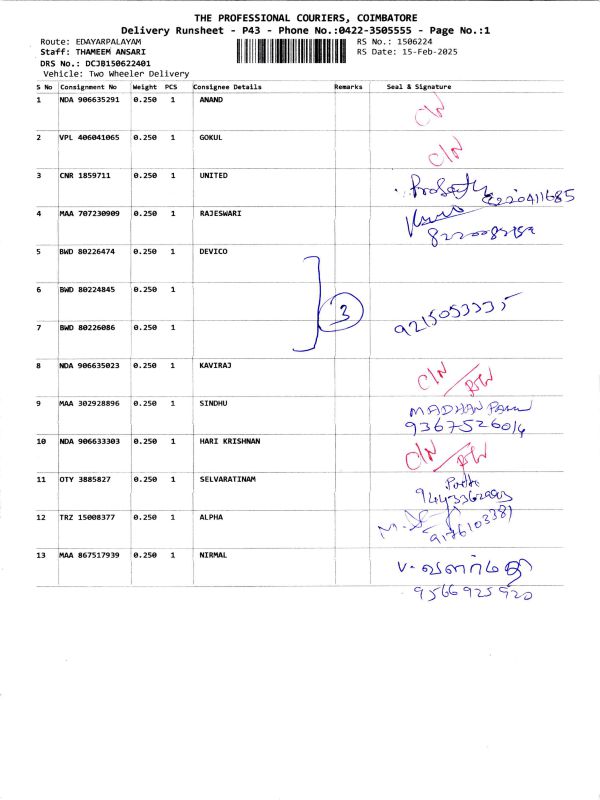 THE PROFESSIONAL COURIERS, COIMBATORE
Delivery Runsheet - P43 - Phone No.:0422-3505555 - Page No.:1
Route: EDAYARPALAYAM RS No.: 1506224
Staff: THAMEEM ANSARI RS Date: 15-Feb-2025
DRS No.: DCJB150622401
Vehicle: Two Wheeler Delivery
S No Consignment No Weight PCS Consignee Details Remarks Seal & Signature
1 NDA 906635291 0.250 1 ANAND C/N
2 VPL 406041065 0.250 1 GOKUL C/N
3 CNR 1859711 0.250 1 UNITED 8220411685
4 MAA 707230909 0.250 1 RAJESWARI
5 BWD 80226474 0.250 1 DEVICO
6 BWD 80224845 0.250 1 3
7 BWD 80226086 0.250 1 9215053335
8 NDA 906635023 0.250 1 KAVIRAJ C/N
9 MAA 302928896 0.250 1 SINDHU MADHAN
9367526014
10 NDA 906633303 0.250 1 HARI KRISHNAN C/N
11 OTY 3885827 0.250 1 SELVARATINAM
12 TRZ 15008377 0.250 1 ALPHA 9176103381
13 MAA 867517939 0.250 1 NIRMAL V. வளர்மதி
9566925920